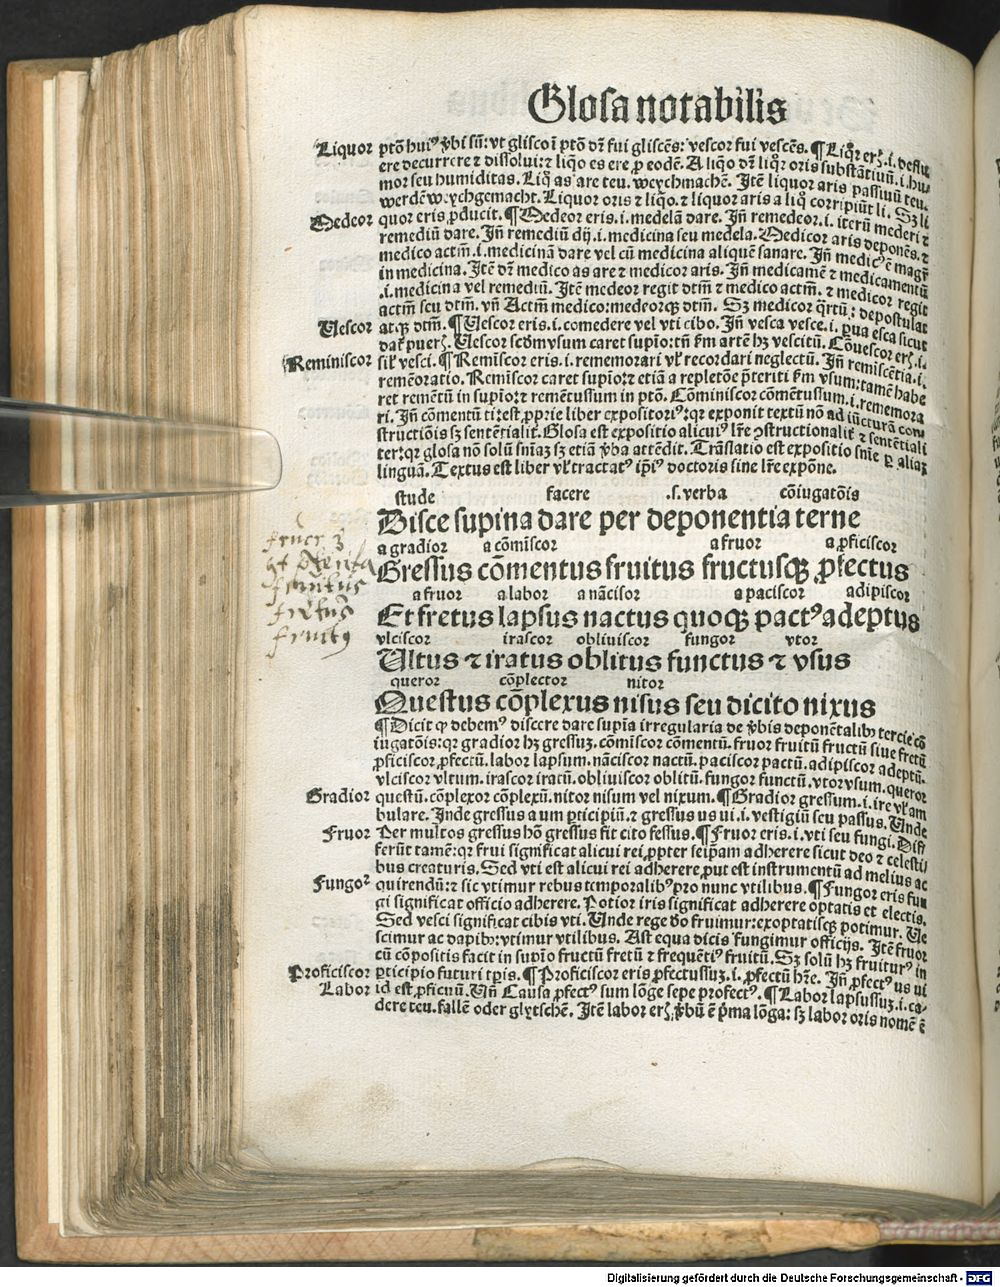 Glosa notabilis
Liquor ptō huiꝰ ꝟbi sū: vt glisco ī ptō dr̄ fui gliscēs: vescor fui vescēs. ¶ Liqr̄ erꝭ .i. deflu
ere decurrere ⁊ dissolui: ⁊ liqo es ere ꝓ eodē. A liqo dr̄ liqr̄ oris substātiuū .i. hu⸗
mor seu humiditas. Liq̄ as are teu. weychmachē. Itē liquor aris passiuū teu.
werdē weychgemacht. Liquor oris ⁊ liqo. ⁊ liquor aris a liq̄ corripiūt li. Sꝫ li
Medeor quor eris ꝓducit. ¶ Medeor eris .i. medelā dare. Jñ remedeor .i. iterū mederi ⁊
remediū dare. Jñ remediū dij .i. medicina seu medela. Medicor aris deponēs. ⁊
medico actm̄ .i. medicinā dare vel cū medicina aliquē sanare. Jñ medicꝰ ē magr̄
in medicina. Itē dr̄ medico as are ⁊ medicor aris. Jñ medicamē ⁊ medicamentū
.i. medicina vel remediū. Itē medeor regit dtm̄ ⁊ medico actm̄. ⁊ medicor regit
actm̄ seu dtm̄. vñ Actm̄ medico: medeorqꝫ dtm̄. Sꝫ medicor q̄rtū: depostulat
Vescor atqꝫ dtm̄. ¶ Vescor eris .i. comedere vel vti cibo. Jñ vesca vesce .i. ꝑua esca sicut
dat̄ puerꝭ. Vescor scd̄m vsum caret supio: tñ ẜm artē hꝫ vescitū. Cōuescor erꝭ .i.
Reminiscor sil̄ vesci. ¶ Remīscor eris .i. rememorari vl̓ recordari neglectū. Jñ remiscētia .i.
remēoratio. Remīscor caret supio: ⁊ etiā a repletōe p̄teriti ẜm vsum: tamē habe
ret remētū in supio: ⁊ remētussum in ptō. Cōminiscor cōmētussum .i. rememora
ri. Jñ cōmentū ti: est ꝓprie liber expositoriꝰ: qr̄ exponit textū nō ad iūcturā con
structiōis sꝫ sentētialiꝭ. Glosa est expositio alicuiꝰ lr̄e ꝯstructionaliꝭ ⁊ sentētiali
ter: qr̄ glosa nō solū sniaꝫ sꝫ etiā ꝟba attēdit. Trāslatio est expositio snīe ꝑ aliaꝫ
linguā. Textus est liber vl̓ tractatꝰ ip̄iꝰ doctoris sine lr̄e expōne.
stude facere .s. verba cōiugatōis
Disce supina dare per deponentia terne
a gradior a cōmīscor a fruor a ꝓficiscor
Gressus cōmentus fruitus fructusqꝫ ꝓfectus
a fruor a labor a nācisor a paciscor adipiscor
Et fretus lapsus nactus quoqꝫ pactꝰ adeptus
vlciscor irascor obliuiscor fungor vtor
Ultus ⁊ iratus oblitus functus ⁊ vsus
queror cōplector nitor
Questus cōplexus nisus seu dicito nixus
¶ Dicit ꝙ debemꝰ discere dare supīa irregularia de ꝟbis deponētalibꝰ tercie cō
iugatōis: qr̄ gradior hꝫ gressuꝫ. cōmīscor cōmentū. fruor fruitū fructū siue fretū
ꝓficiscor ꝓfectū. labor lapsum. nāciscor nactū. paciscor pactū. adipiscor adeptū.
vlciscor vltum. irascor iractū. obliuiscor oblitū. fungor functū. vtor vsum. queror
Gradior questū. cōplexor cōplexū. nitor nisum vel nixum. ¶ Gradior gressum .i. ire vl̓ am
bulare. Inde gressus a um ꝑticipiū. ⁊ gressus us ui .i. vestigiū seu passus. Unde
Fruor Per multos gressus hō gressus fit cito fessus. ¶ Fruor eris .i. vti seu fungi. Diff
ferūt tamē: qr̄ frui significat alicui rei ꝓpter seip̄am adherere sicut deo ⁊ celesti⸗
bus creaturis. Sed vti est alicui rei adherere ꝓut est instrumentū ad melius ac
Fungor quirendū: ⁊ sic vtimur rebus temporalibꝰ pro nunc vtilibus. ¶ Fungor eris fun
gi significat officio adherere. Potior iris significat adherere optatis et electis.
Sed vesci significat cibis vti. Unde rege deo fruimur: exoptatisqꝫ potimur. Ve
scimur ac dapibꝰ: vtimur vtilibus. Ast equa dicis fungimur officijs. Itē fruor
cū cōpositis facit in supio fructū fretū ⁊ frequētiꝰ fruitū. Sꝫ solū hꝫ fruiturꝰ in
Proficiscor ꝑticipio futuri tꝑis. ¶ Proficiscor eris ꝓfectussuꝫ .i. ꝓfectū hr̄e. Jñ ꝓfectꝰ us ui
Labor id est ꝓficuū. Vñ Causa ꝓfectꝰ sum lōge sepe profectꝰ. ¶ Labor lapsussuꝫ .i. ca⸗
dere teu. fallē oder glytschē. Itē labor erꝭ ꝟbū ē p̄ma lōga: sꝫ labor oris nomē ē
fretus
fruitꝰ
Digitalisierung gefördert durch die Deutsche Forschungsgemeinschaft - DFG